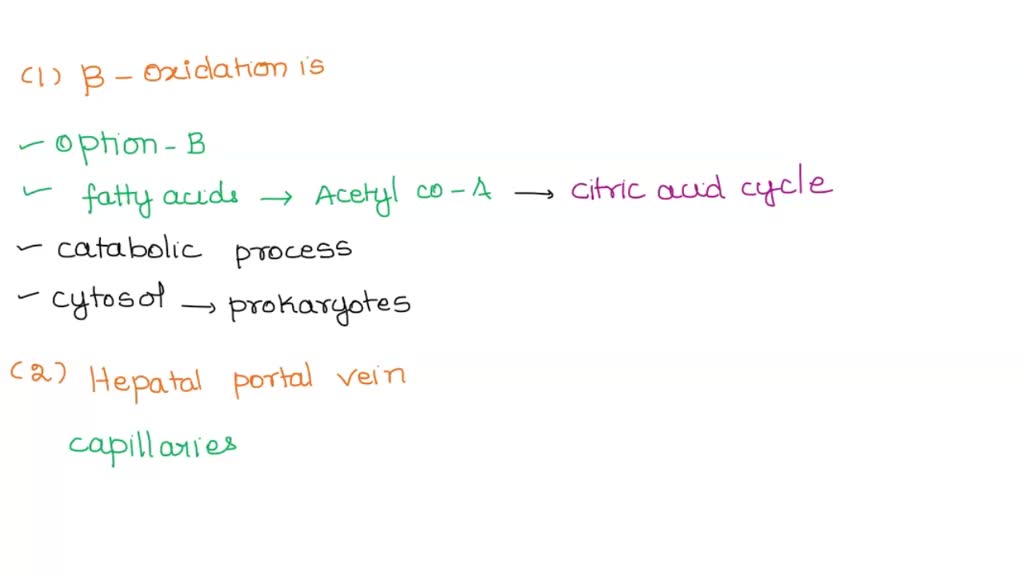 (1) β - oxidation is
✓ option - B
✓ fatty acids → Acetyl co - A → citric acid cycle
✓ catabolic process
✓ cytosol → prokaryotes
(2) Hepatal portal vein
capillaries